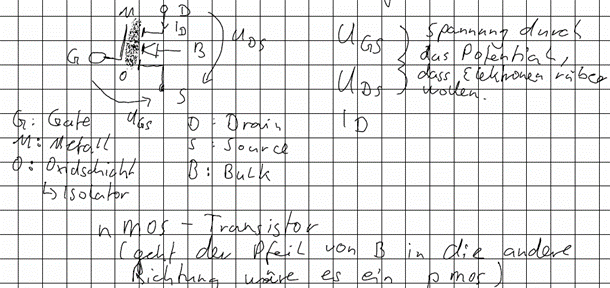 M D
I_D
G B U_DS
O
S
U_GS
U_GS
U_DS
I_D
Spannung durch
das Potential,
dass Elektronen rüber
wollen.
G: Gate
M: Metall
O: Oxidschicht
↳ Isolator
D: Drain
S: Source
B: Bulk
n MOS - Transistor
(geht der Pfeil von B in die andere
Richtung wäre es ein pmos)